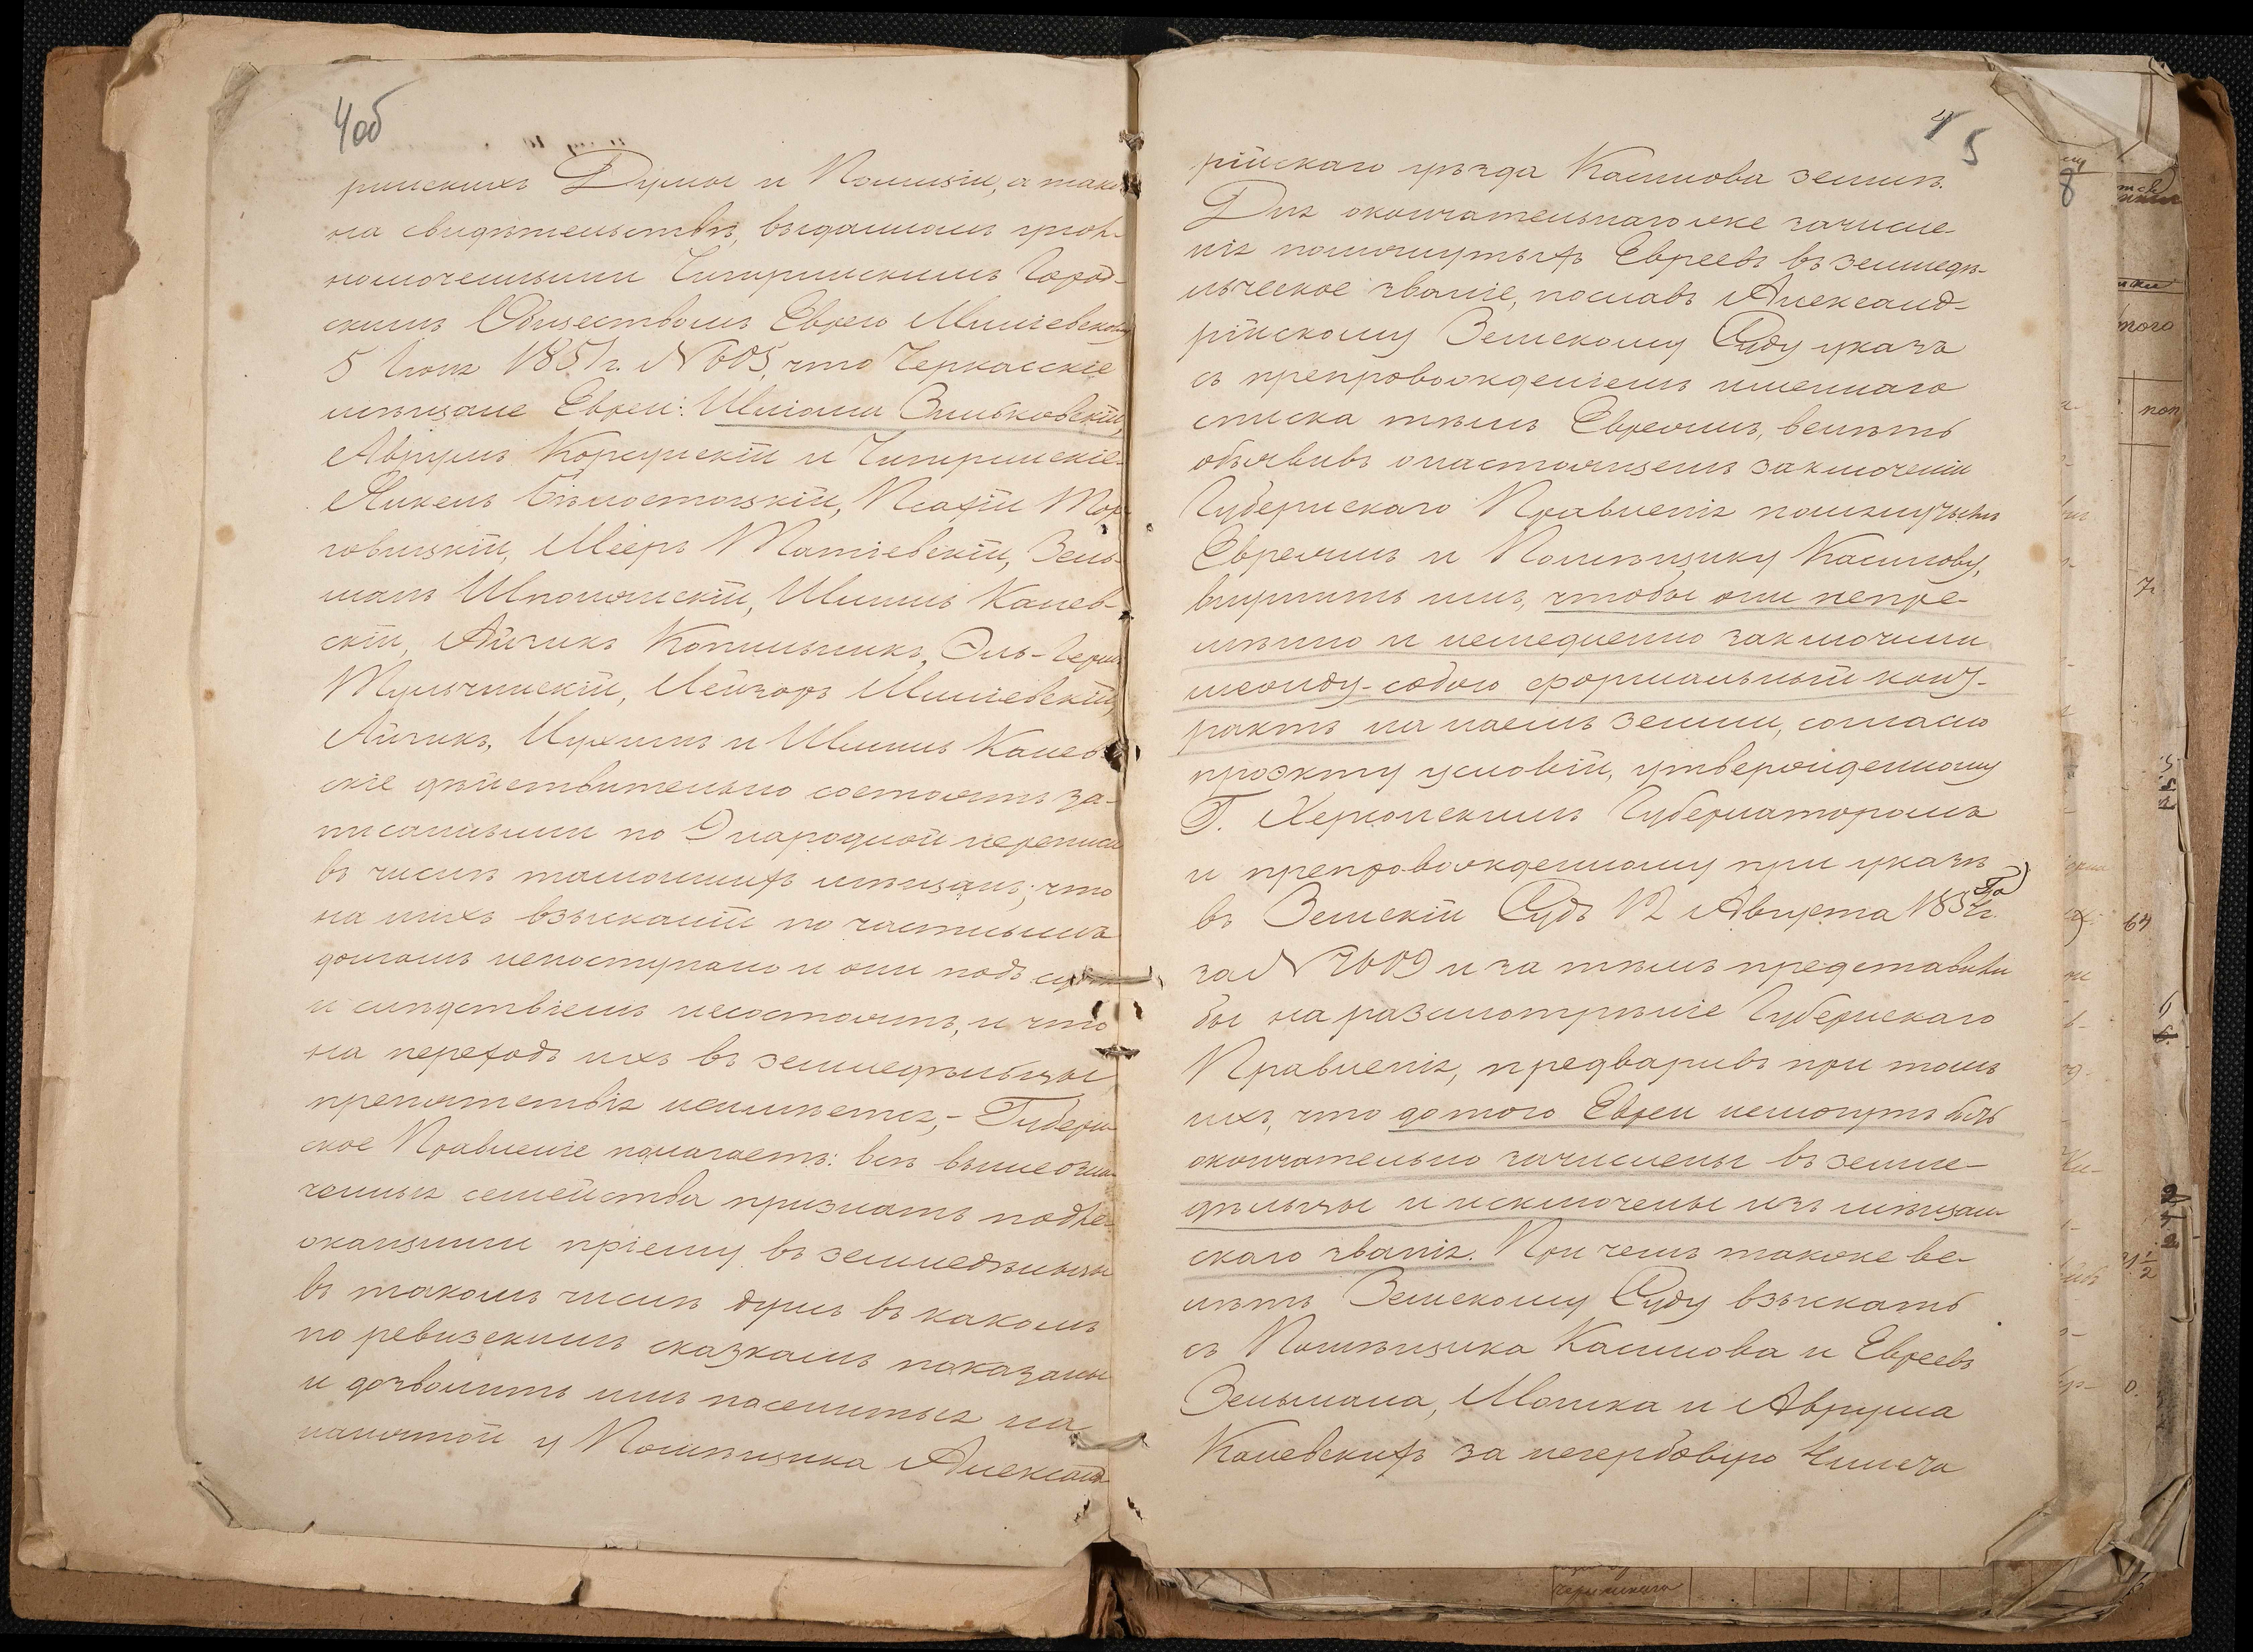 4об
ринскихъ Думы и Полиціи, а также
на свидѣтельствѣ, выданномъ упол-
номоченными Чигиринскимъ Город-
скимъ Обществомъ Еврею Милиевскому
5 Іюля 1851 г. № 605, что Черкасскіе
мѣщане Евреи: Шліома Вильковскій,
Аврумъ Корсунскій и Чигиринскіе
Янкель Бѣлостоцкій, Песахій Тор-
говицкій, Меєръ Матіевскій, Зель-
манъ Шполянскій, Шмиль Канев-
скій, Айзикъ Копильникъ, Эль-Герш
Тульчинскій, Лейзоръ Миліевскій,
Айзикъ, Нухимъ и Шмиль Канев-
скіе дѣйствительно состоятъ за-
писанными по 9 народной переписи
въ числѣ тамошнихъ мѣщанъ; что
на нихъ взысканій по частнымъ
долгамъ непоступало и они подъ судомъ
и слѣдствіемъ несостоятъ, и что
на переходъ ихъ въ земледѣльцы
препятствія неимѣется, – Губерн-
ское Правленіе полагаетъ: всѣ вышеозна-
ченныя семейства признать подле-
жащими пріему въ земледѣльцы
въ такомъ числѣ душъ въ какомъ
по ревизскимъ сказкамъ показаны
и дозволить имъ поселиться на
нанятой у Помѣщика Александ-
4 5
рійскаго уѣзда Касинова землѣ.
Для окончательнаго же зачисле-
нія помянутыхъ Евреевъ въ земледѣ-
льческое званіе, пославъ Александ-
рійскому Земскому Суду указъ
съ препровожденіемъ именнаго
списка тѣмъ Евреямъ, велѣть
объявивъ о настоящемъ заключеніи
Губернскаго Правленія помянутымъ
Евреямъ и Помѣщику Касинову,
внушить имъ, чтобы они непре-
мѣнно и немедленно заключили
между собою формальный конт-
рактъ на наемъ земли, согласно
проэкту условій, утвержденному
Г. Херсонскимъ Губернаторомъ
и препровожденному при указѣ
въ Земскій Судъ 12 Августа 185 г.
за № 2609 и за тѣмъ представили
бы на разсмотрѣніе Губернскаго
Правленія, предваривъ при томъ
ихъ, что до того Евреи немогутъ быть
окончательно зачислены въ земле-
дѣльцы и исключены изъ мѣщан-
скаго званія. При чемъ также ве-
лѣть Земскому Суду взыскать
съ Помѣщика Касинова и Евреевъ
Зельмана, Мошка и Аврума
Каневскихъ за негербовую